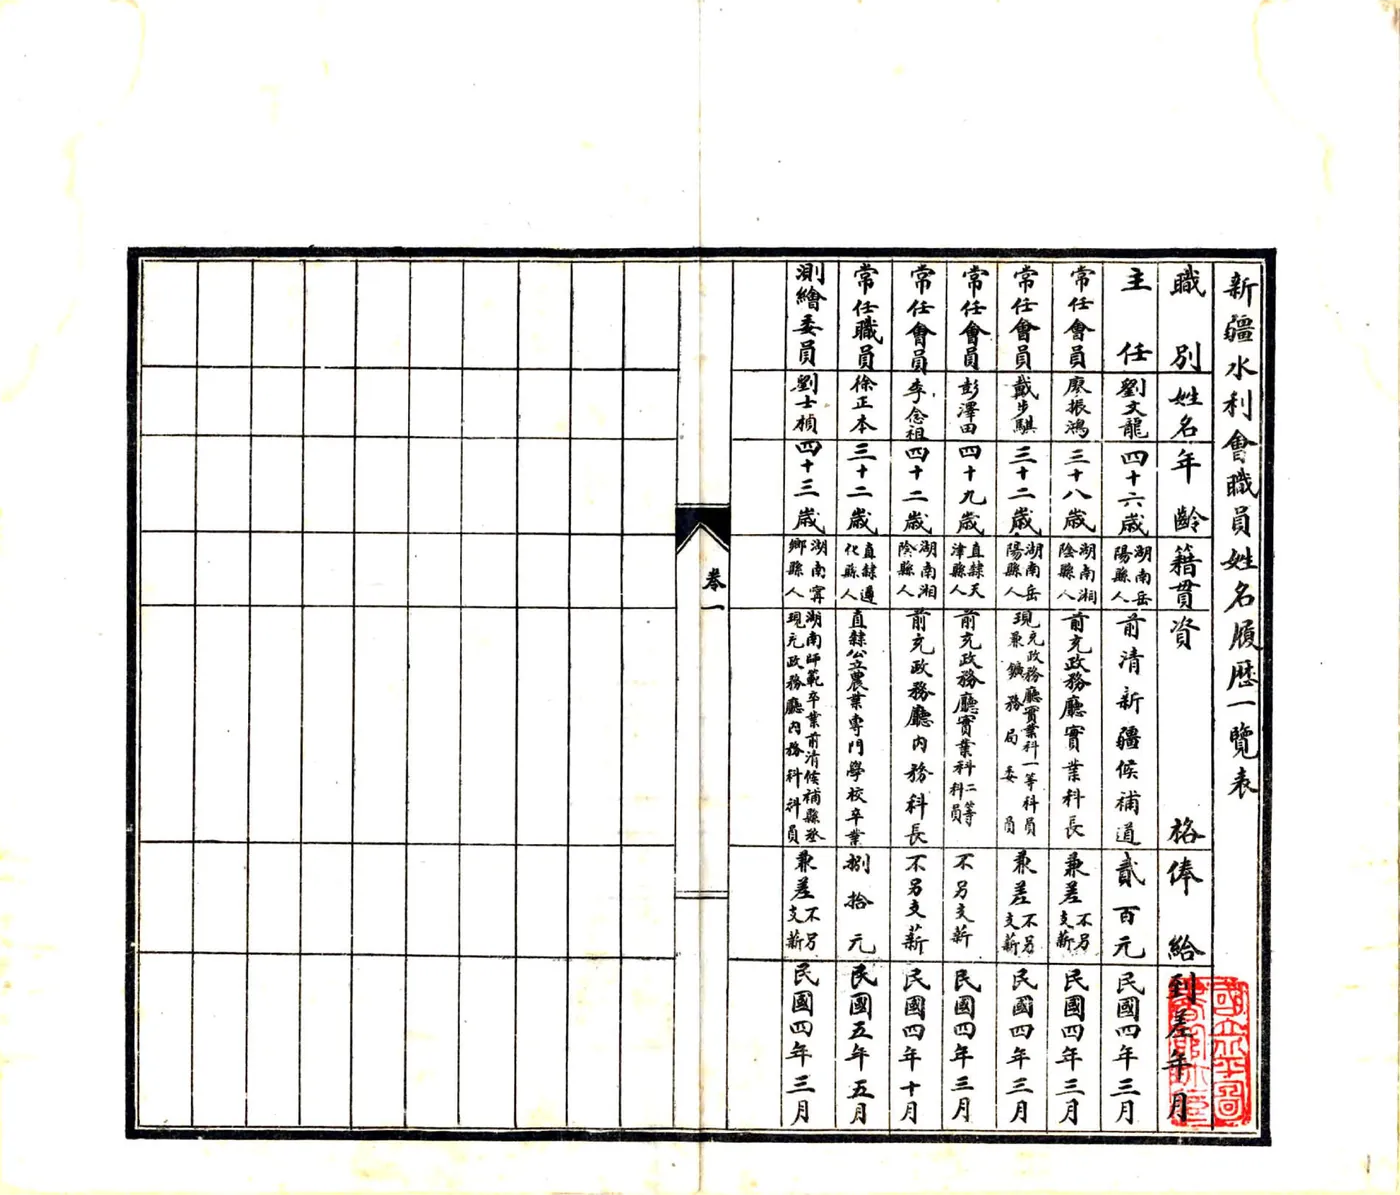 新疆水利會職員姓名履歷一覽表
職別 姓名 年齡 籍貫 資格 俸給 到差年月
主任 劉文龍 四十六歲 湖南岳陽縣人 前清新疆候補道 貳百元 民國四年三月
常任會員 廖振鴻 三十八歲 湖南湘陰縣人 前充政務廳實業科長 兼差不另支薪 民國四年三月
常任會員 戴步騏 三十二歲 湖南岳陽縣人 現充政務廳實業科一等科員兼鑛務局委員 兼差不另支薪 民國四年三月
常任會員 彭澤田 四十九歲 直隸天津縣人 前充政務廳實業科二等科員 不另支薪 民國四年三月
常任會員 李念祖 四十二歲 湖南湘陰縣人 前充政務廳內務科長 不另支薪 民國四年十月
常任職員 徐正本 三十二歲 直隸遵化縣人 直隸公立農業專門學校卒業 捌拾元 民國五年五月
測繪委員 劉士楨 四十三歲 湖南甯鄉縣人 湖南師範卒業前清候補縣丞現充政務廳內務科科員 兼差不另支薪 民國四年三月
卷一